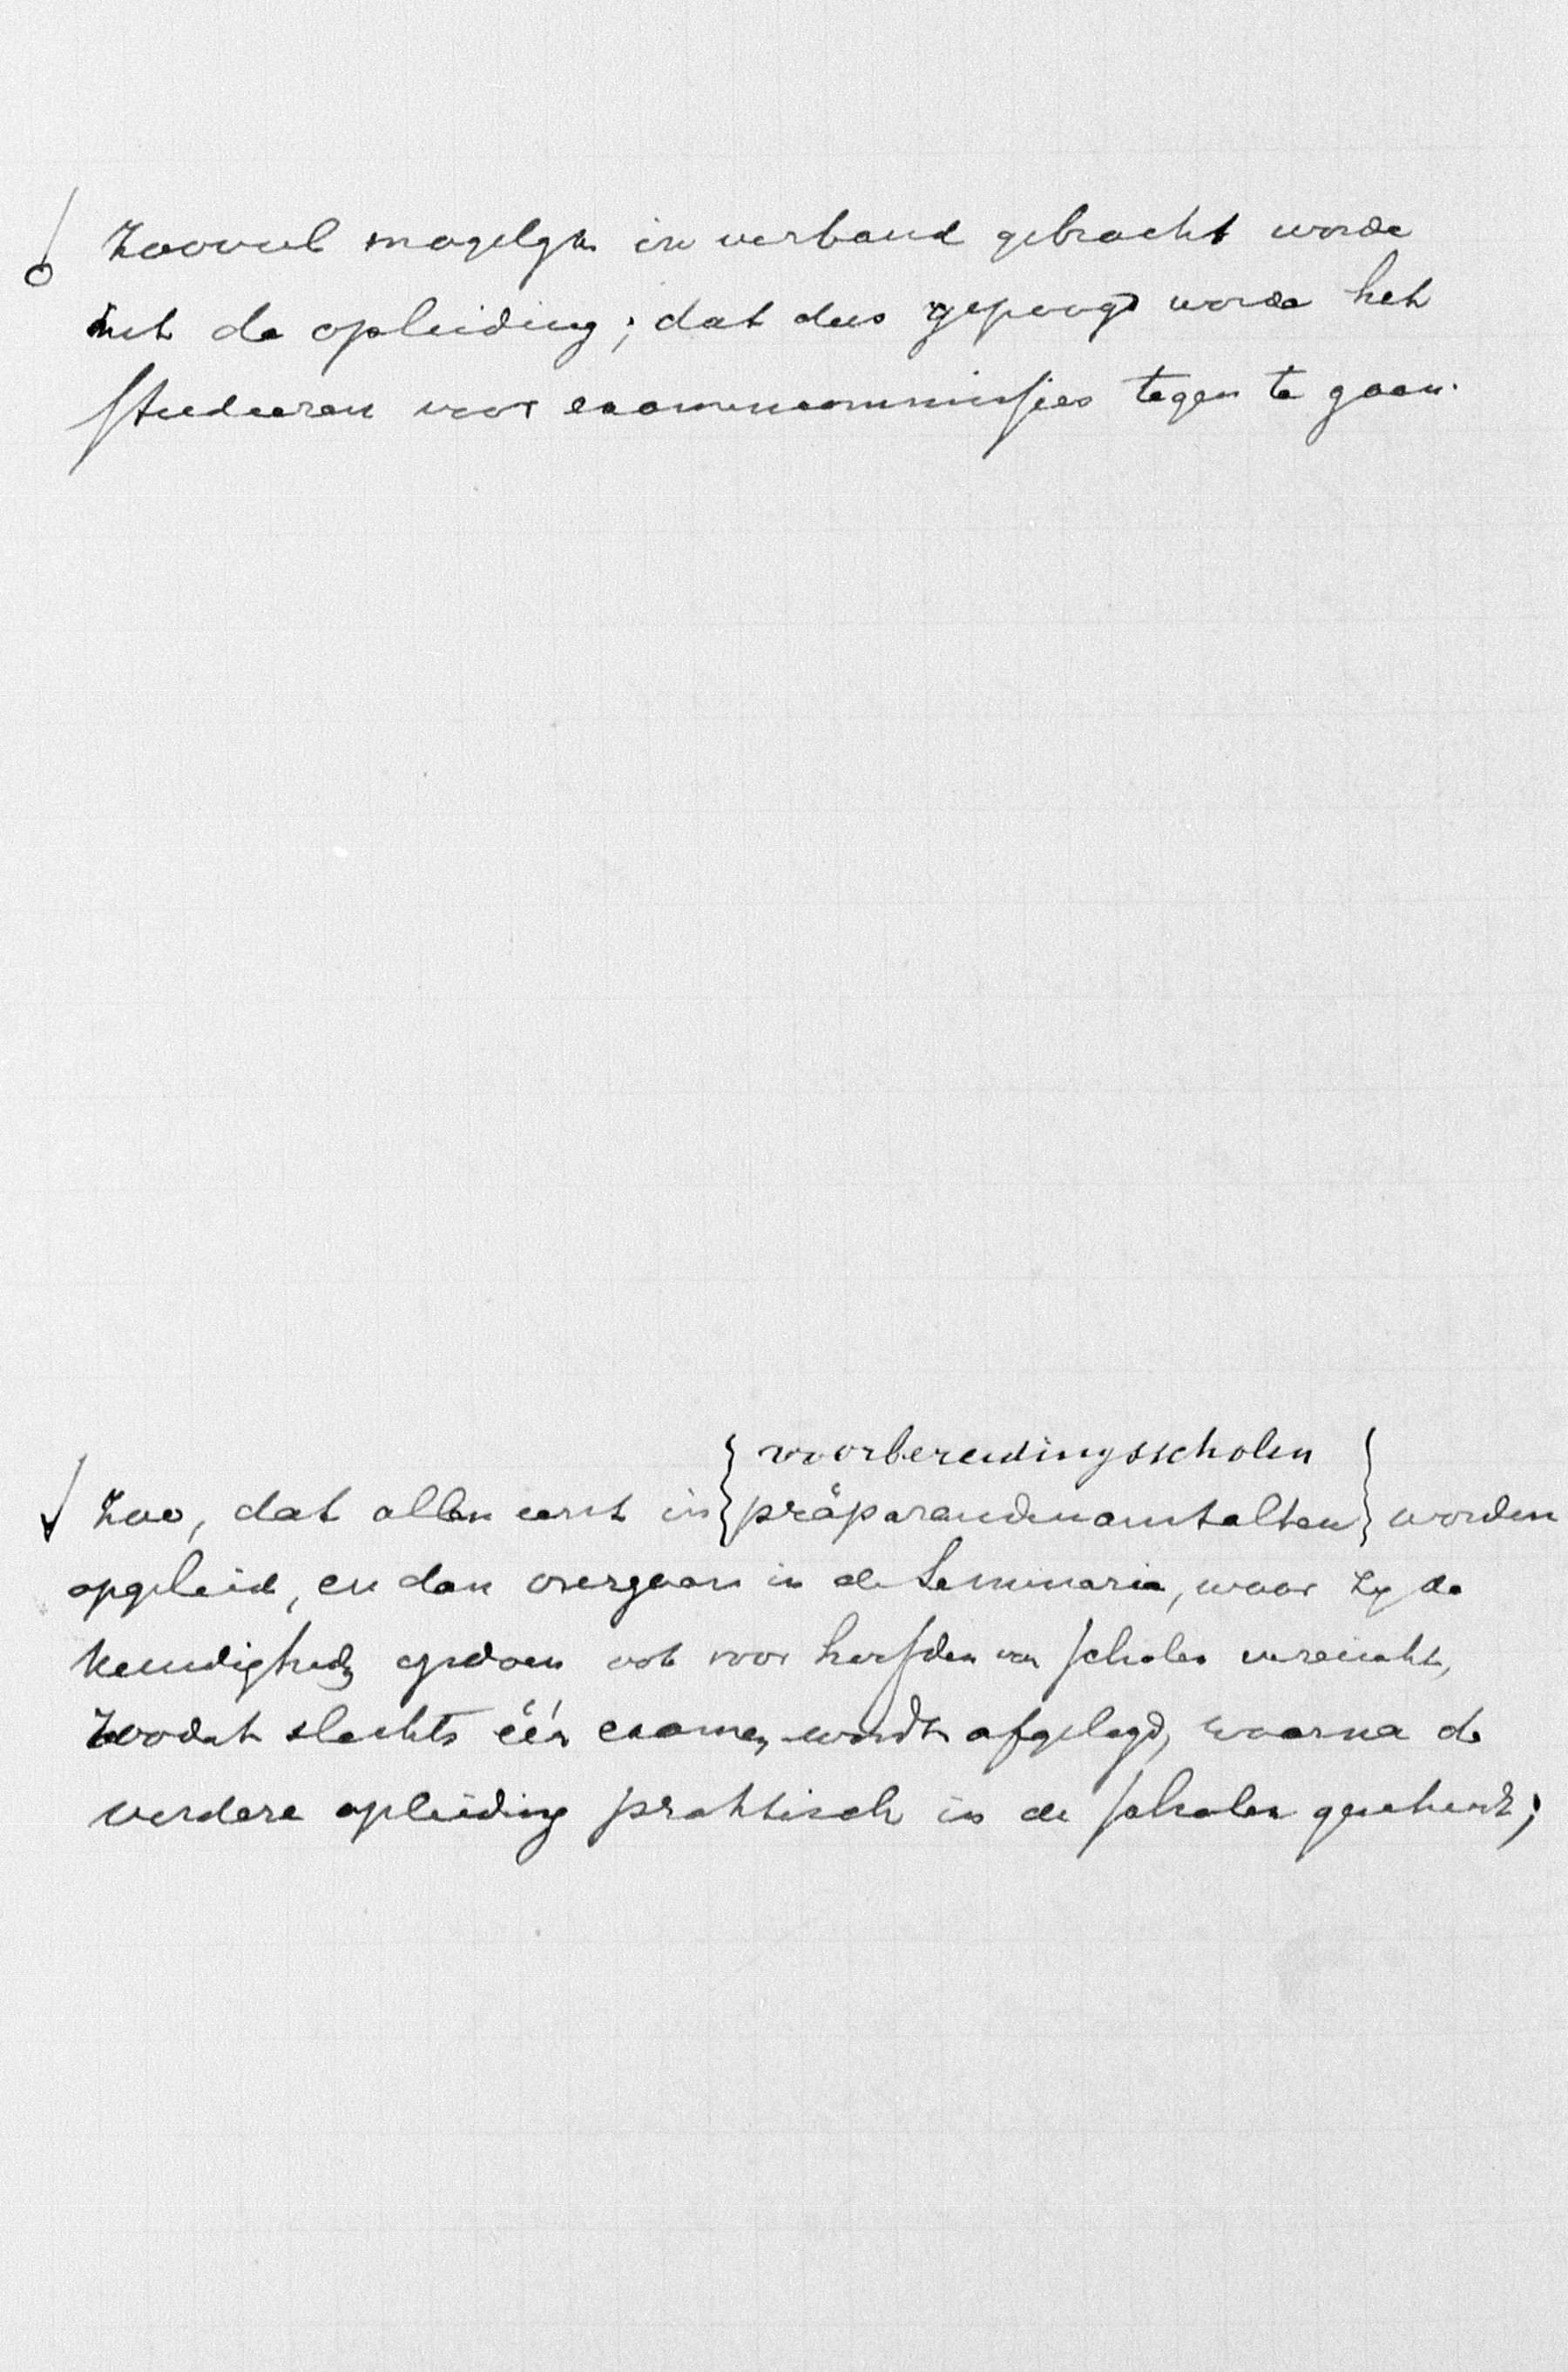 zooveel mogelijk in verband gebracht worde
met de opleiding; dat dus gepoogd worde het
studeeren voor examencommissies tegen te gaan.
voorbereidingsscholen
Zoo, dat allen eerst in präparandenanstalten worden
opgeleid, en dan overgaan in de Seminaria, waar zij de
kundigheden opdoen ook voor hoofden van scholen vereischt,
zoodat slechts één examen wordt afgelegd, waarna de
verdere opleiding praktisch in de scholen geschiedt;